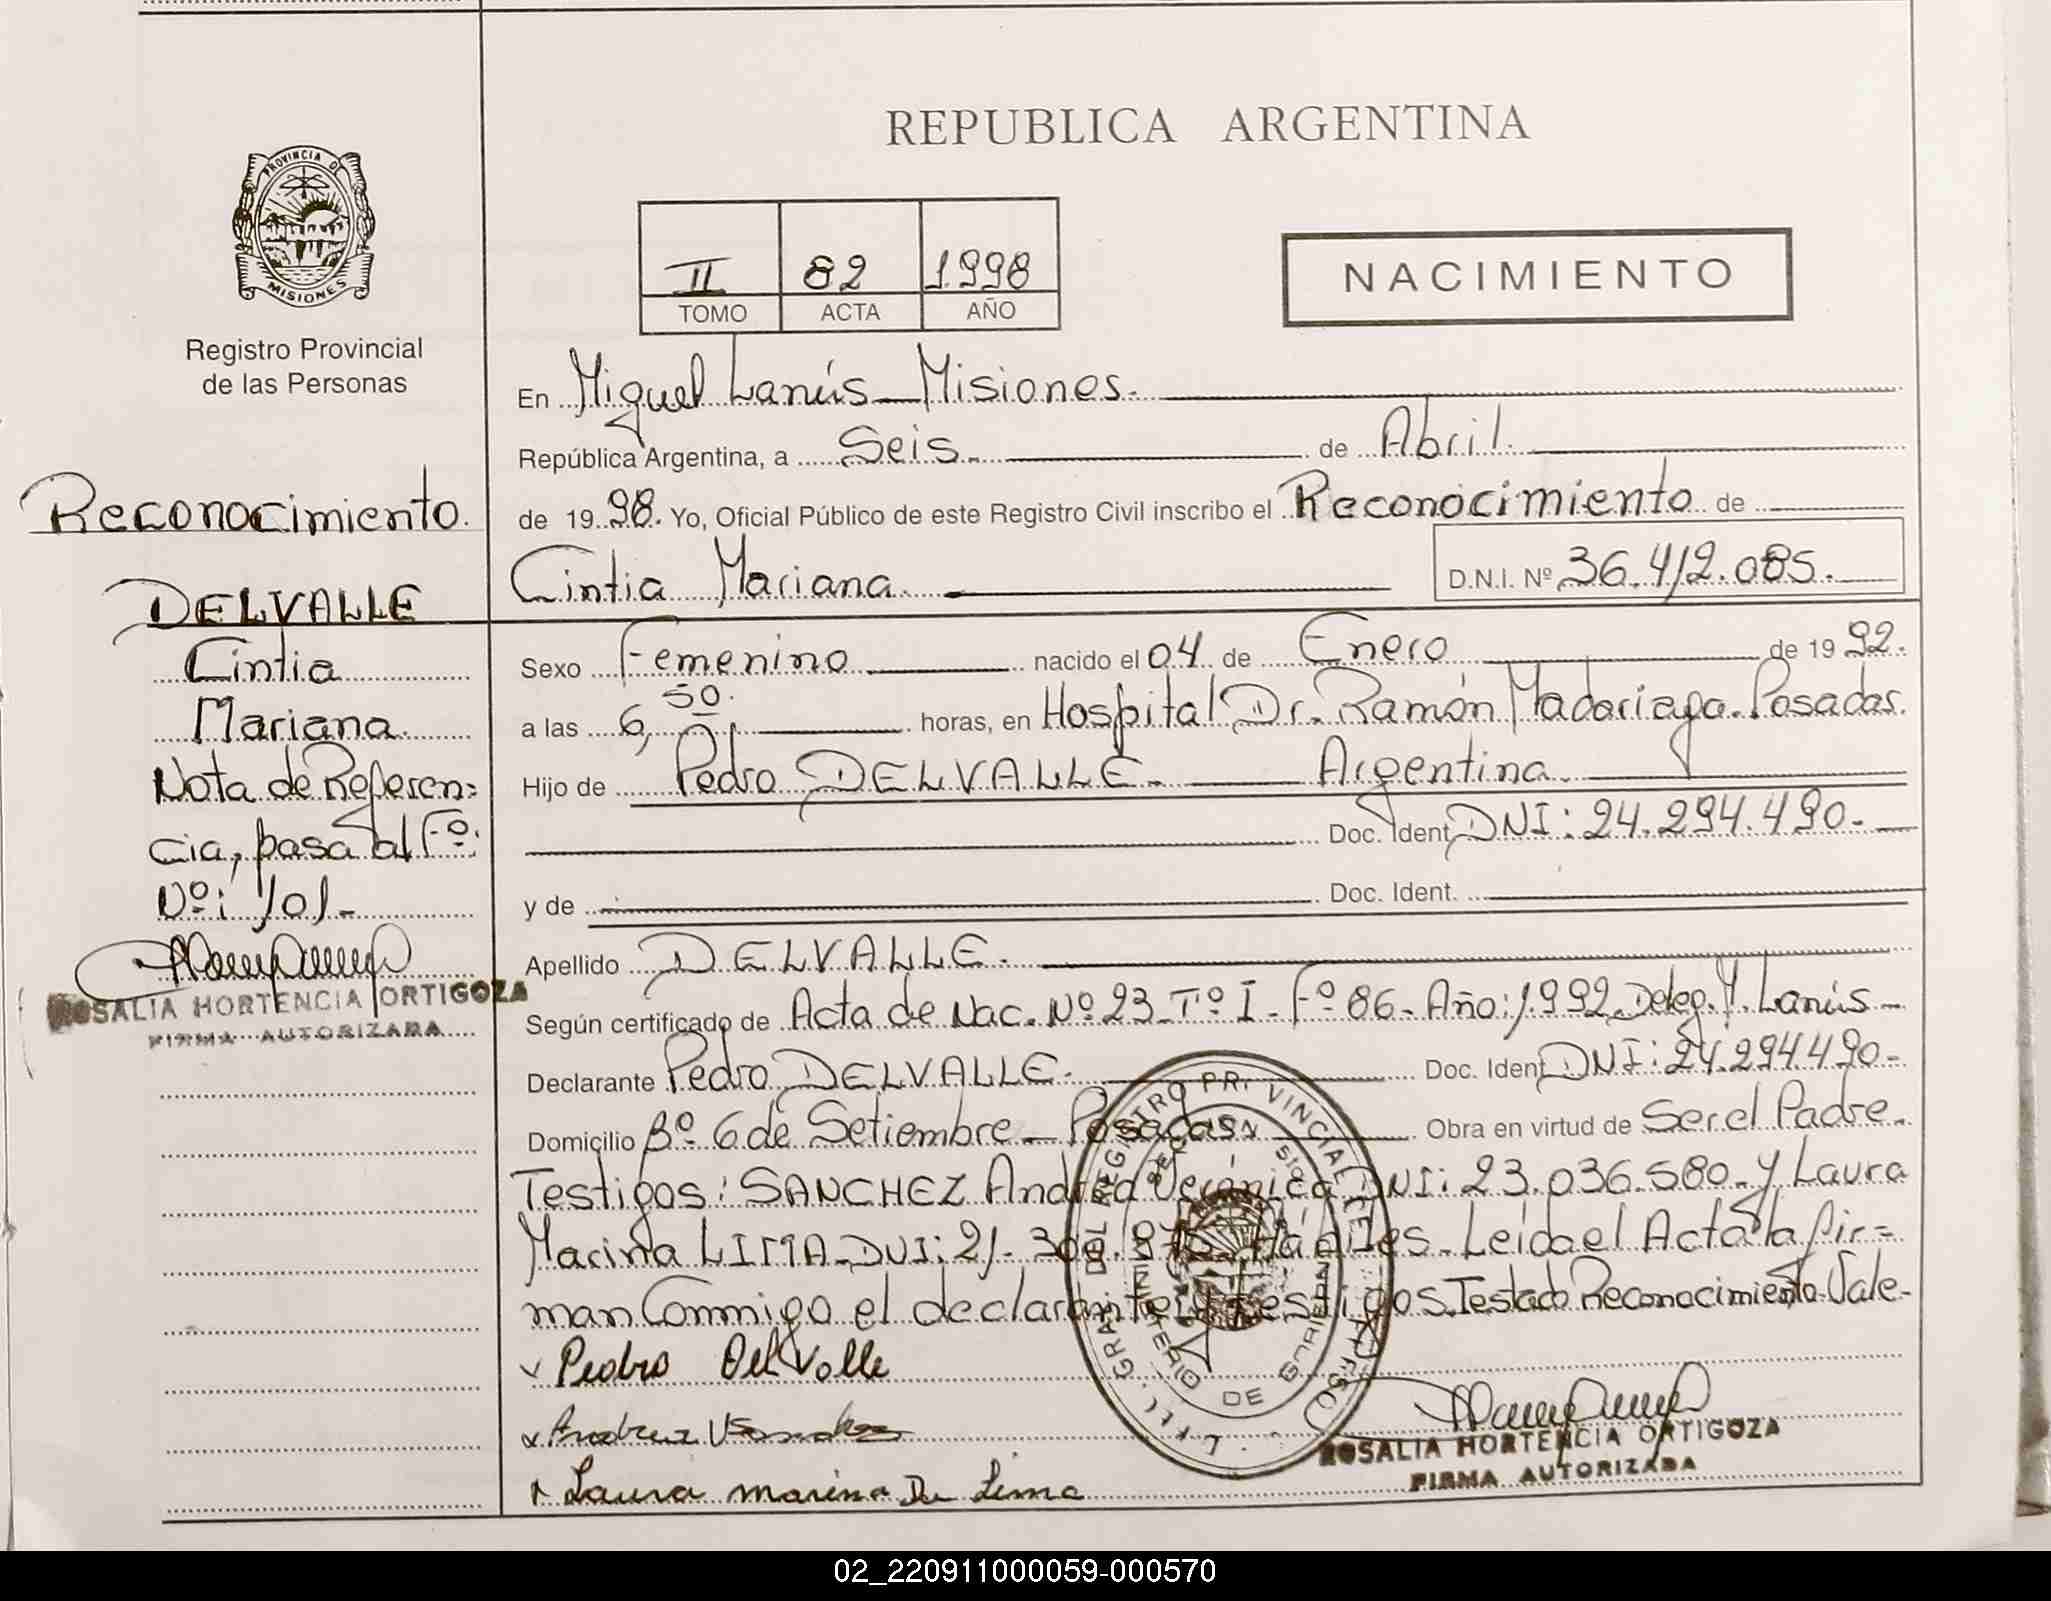 REPUBLICA ARGENTINA
PROVINCIA DE
MISIONES
Registro Provincial
de las Personas
II 82 1998
TOMO ACTA AÑO
NACIMIENTO
Reconocimiento.
DELVALLE
Cintia
Mariana.
Nota de Referen=
cia, pasa al Fº.
Nº: 101-
ROSALIA HORTENCIA ORTIGOZA
FIRMA AUTORIZADA
En Miguel Lanús - Misiones.
República Argentina, a Seis. de Abril.
de 1998. Yo, Oficial Público de este Registro Civil inscribo el Reconocimiento de
Cintia Mariana. D.N.I. Nº 36.412.085.
Sexo Femenino nacido el 04 de Enero de 1992.
a las 6,50. horas, en Hospital Dr. Ramón Madariaga. Posadas.
Hijo de Pedro DELVALLE. Argentina.
Doc. Ident. DNI: 24.294.490.
y de Doc. Ident.
Apellido DELVALLE.
Según certificado de Acta de Nac. Nº 23 - Tº I - Fº 86 - Año: 1992, Deleg. M. Lanús -
Declarante Pedro DELVALLE. Doc. Ident DNI: 24.294.490-
Domicilio Bº. 6 de Setiembre - Posadas Obra en virtud de Ser el Padre.
Testigos: SANCHEZ Andrea Verónica DNI: 23.036.580. y Laura
Marina LIMA - DNI: 21. Hábiles. Leída el Acta la fir=
man Conmigo el declarante y testigos. Testado Reconocimiento. Vale-
Pedro Del Valle
Andrea V Sanchez
Laura Marina Da Lima
MINISTERIO DE GOBIERNO
ROSALIA HORTENCIA ORTIGOZA
FIRMA AUTORIZADA
02_220911000059-000570